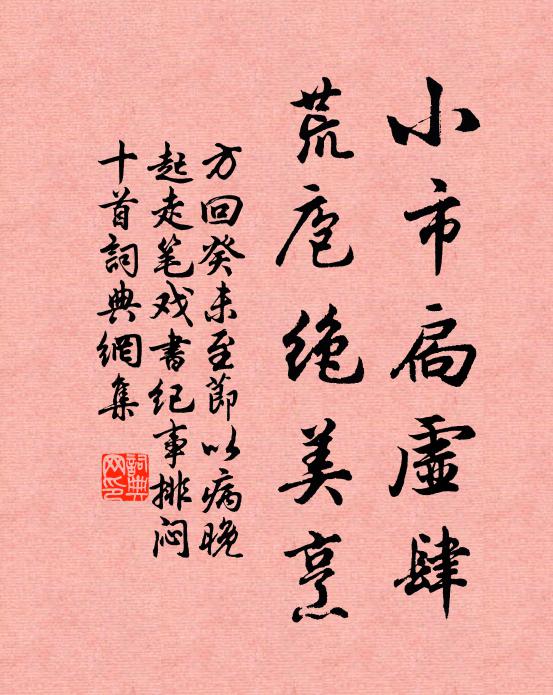 小市扃虚肆
荒庖绝美烹
方回癸未至節以病晚
起走笔戏書纪事排闷
十首詞典網集
詞典网印